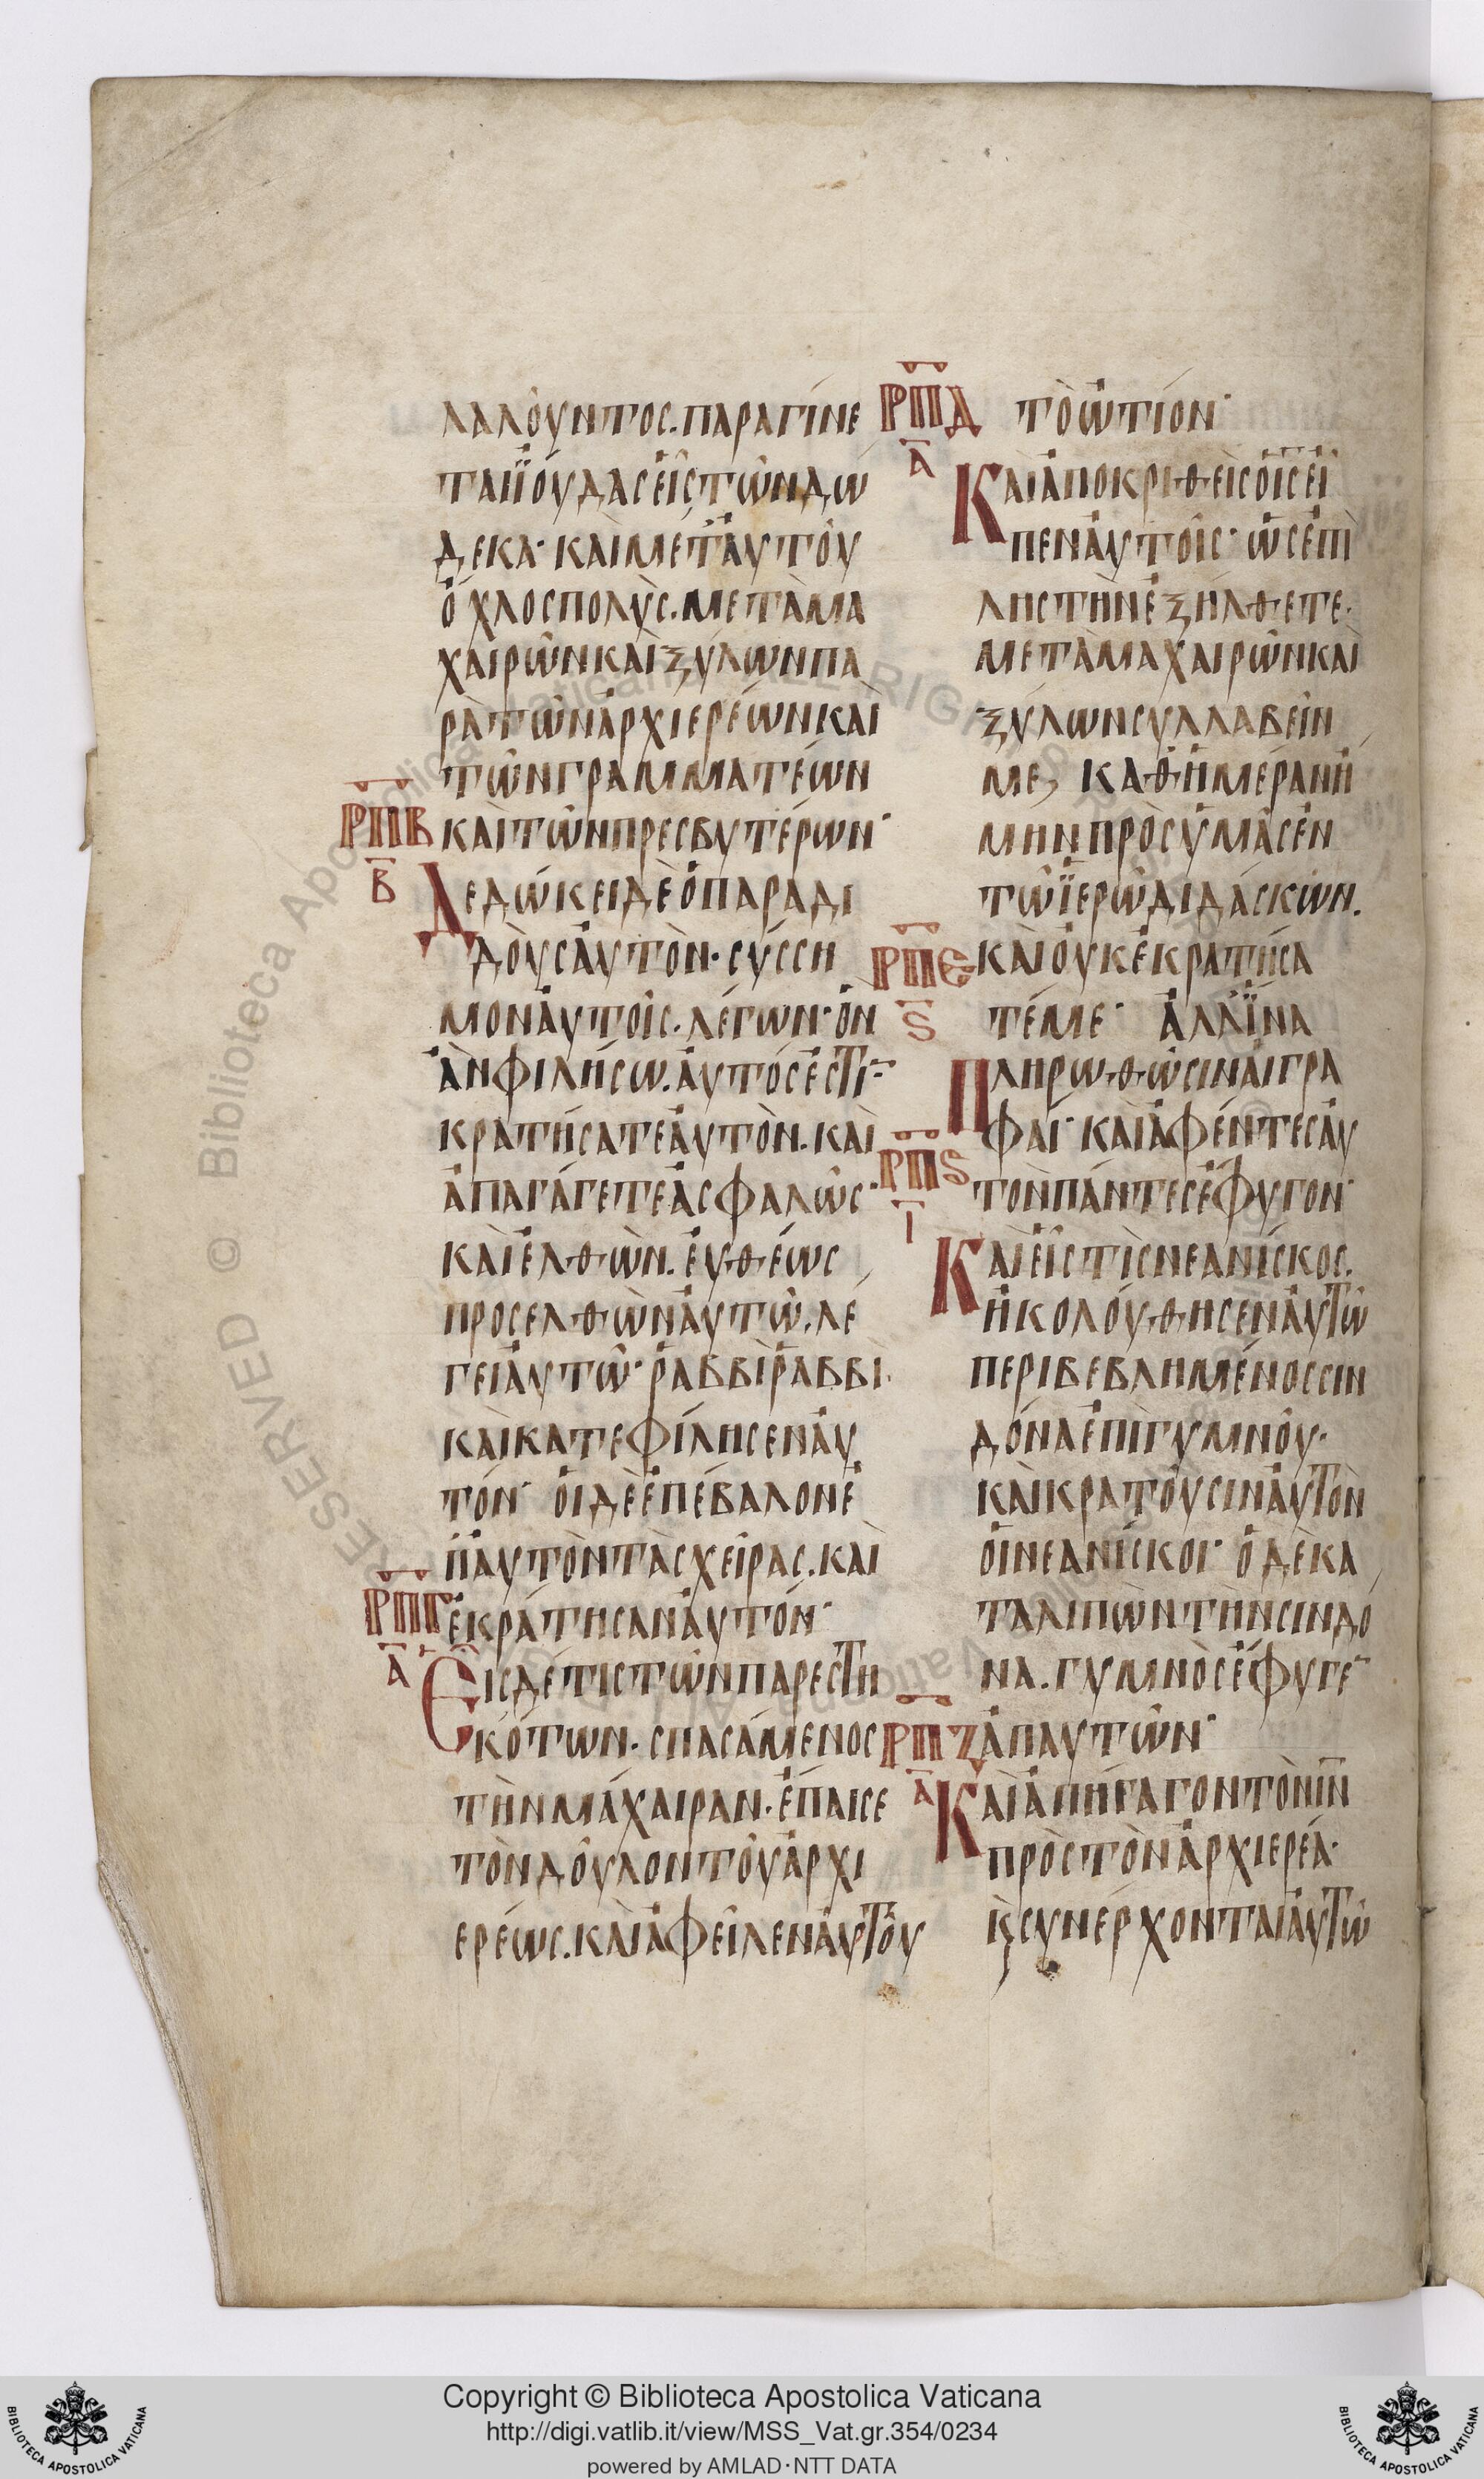 λαλοῦντος. παραγίνε
ται ϊούδας εἷς τῶν δώ
δεκα· καὶ μετ' αὐτοῦ
ὄχλος πολὺς. μετὰ μα
χαιρῶν καὶ ξύλων πα
ρὰ τῶν ἀρχιερέων καὶ
τῶν γραμματέων
ΡΠΒ καὶ τῶν πρεσβυτέρων·
Β Δεδώκει δὲ ὁ παραδι
δοὺς αὐτὸν· σύσση
μον αὐτοῖς. λέγων· ὃν
ἂν φιλήσω. αὐτός ἐστι·
κρατήσατε αὐτὸν. καὶ
ἀπαγάγετε ἀσφαλῶς·
καὶ ἐλθὼν. εὐθέως
προσελθὼν αὐτῶ. λέ
γει αὐτῶ· ῥαββὶ ῥαββὶ.
καὶ κατεφίλησεν αὐ
τόν· οἱ δὲ ἐπέβαλον ἐ
π' αὐτὸν τὰς χεῖρας. καὶ
ΡΠΓ ἐκράτησαν αὐτόν·
Α Εἷς δέ τις τῶν παρεστη
κότων. σπασάμενος
τὴν μάχαιραν. ἔπαισε
τὸν δοῦλον τοῦ ἀρχι
ερέως. καὶ ἀφεῖλεν αὐτοῦ
ΡΠΔ τὸ ὠτίον·
Α Καὶ ἀποκριθεὶς ὁ ις εἶ
πεν αὐτοῖς· ὡς ἐπὶ
ληστὴν ἐξήλθετε.
μετὰ μαχαιρῶν καὶ
ξύλων συλλαβεῖν
με, καθ' ἡμέραν ἤ
μην πρὸς ὑμᾶς ἐν
τῶ ϊερῶ διδάσκων.
ΡΠΕ καὶ οὐκ ἐκρατήσα
Ϛ τέ με· ἀλλ' ϊνα
Πληρωθῶσιν αἱ γρα
φαί· καὶ ἀφέντες αὐ
ΡΠϚ τὸν πάντες ἔφυγον·
Ι Καὶ εἷς τὶς νεανίσκος.
ἠκολούθησεν αὐτῶ
περιβεβλημένος σιν
δόνα ἐπὶ γυμνοῦ·
καὶ κρατοῦσιν αὐτὸν
οἱ νεανίσκοι· ὁ δὲ κα
ταλιπὼν τὴν σινδό
να. γυμνὸς ἔφυγε
ΡΠΖ ἀπ αυτῶν·
Α Καὶ ἀπήγαγον τὸν ιν
πρὸς τὸν ἀρχιερέα·
κ̀ συνέρχονται αὐτῶ
Copyright © Biblioteca Apostolica Vaticana
http://digi.vatlib.it/view/MSS_Vat.gr.354/0234
powered by AMLAD·NTT DATA
BIBLIOTECA APOSTOLICA VATICANA
BIBLIOTECA APOSTOLICA VATICANA